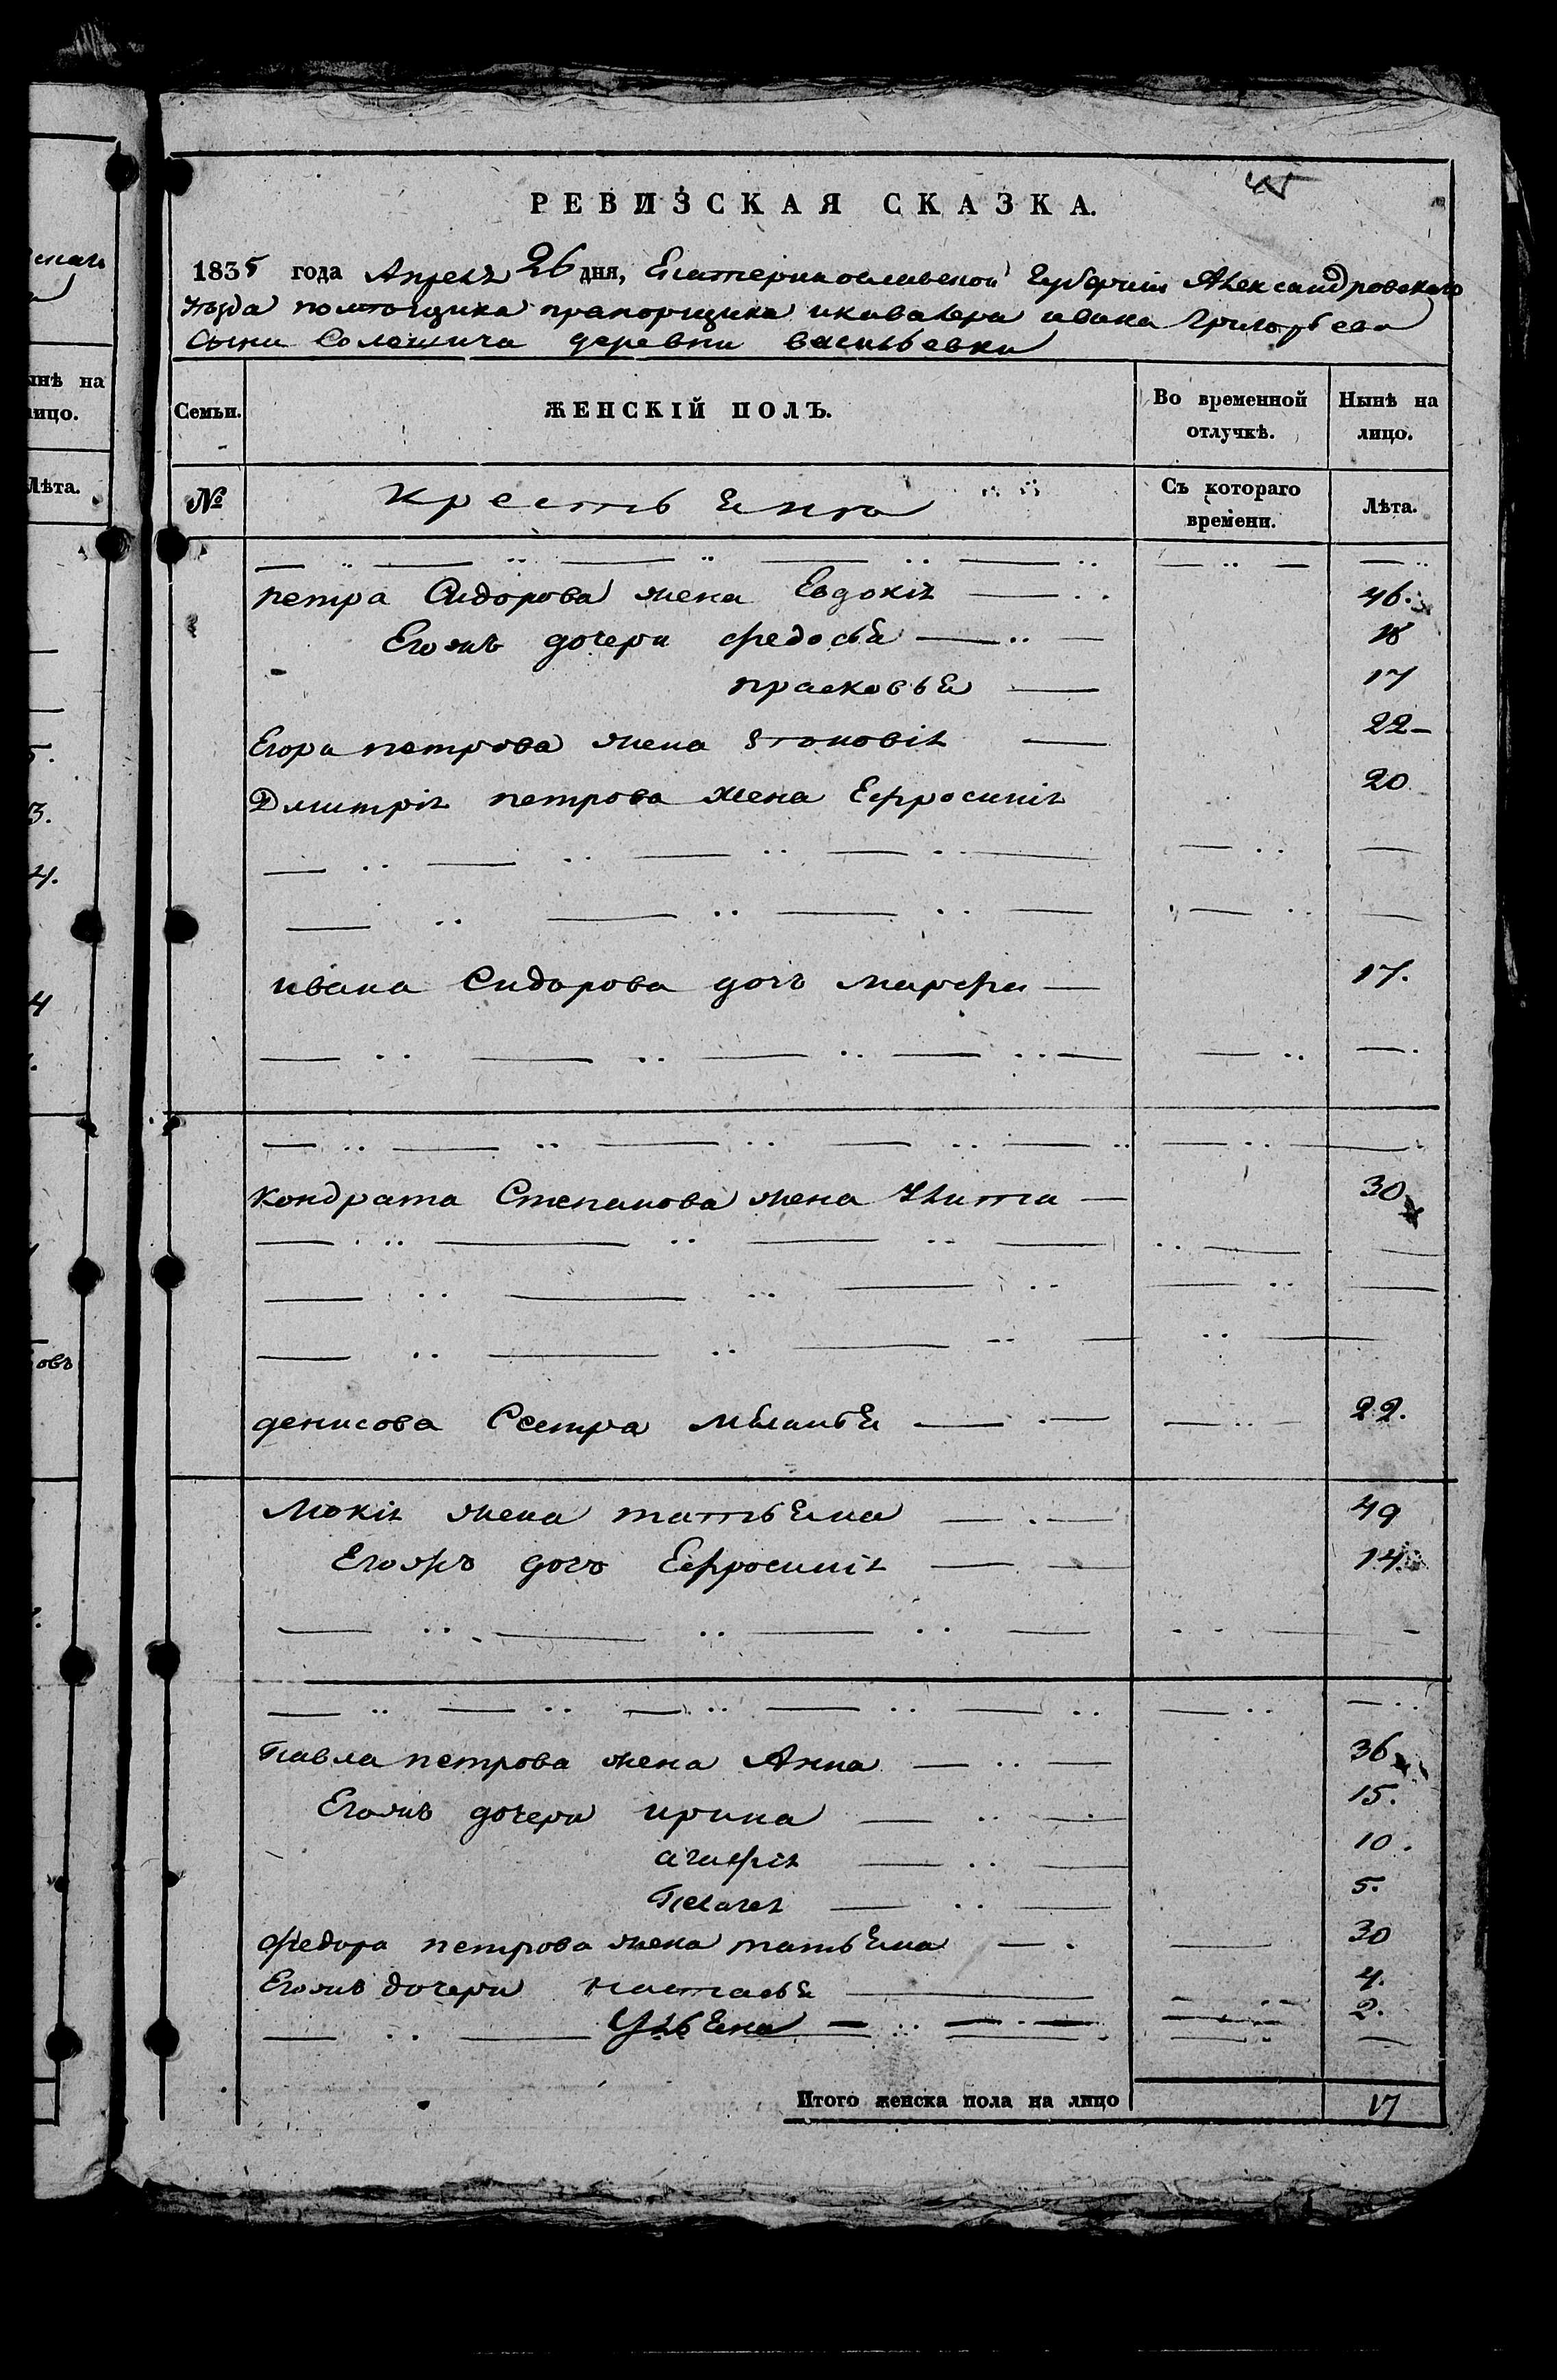 45
РЕВИЗСКАЯ СКАЗКА.
1835 года Апреля 26 дня, Екатеринославской Губернии Александровского
уѣзда помещика прапорщика икавалера ивана Григорьева
Сына деревни васильевки
Семьи.
ЖЕНСКІЙ ПОЛЪ.
Во временной отлучкѣ.
Нынѣ на лицо.
№
крестьяне
Съ котораго времени.
Лѣта.
петра Сидорова жена Евдокія 46.
Егожъ дочери федосья 18
прасковья 17
Егора петрова жена 22
Дмитрія петрова жена Ефросинія 20
ивана Сидорова дочь марфа 17.
кондрата Степанова жена 30
денисова Сестра мѣланья 22.
Мокія жена татьяна 49
Егожъ дочь Ефросинія 14
Павла петрова жена Анна 36
Егожъ дочери ирина 15.
агафія 10.
Пелагея 5.
федора петрова жена татьяна 30
Егожъ дочери настасья 4.
Ульяна 2.
Итого женска пола на лицо 17
ынѣ на
лицо.
Лѣта.
овъ